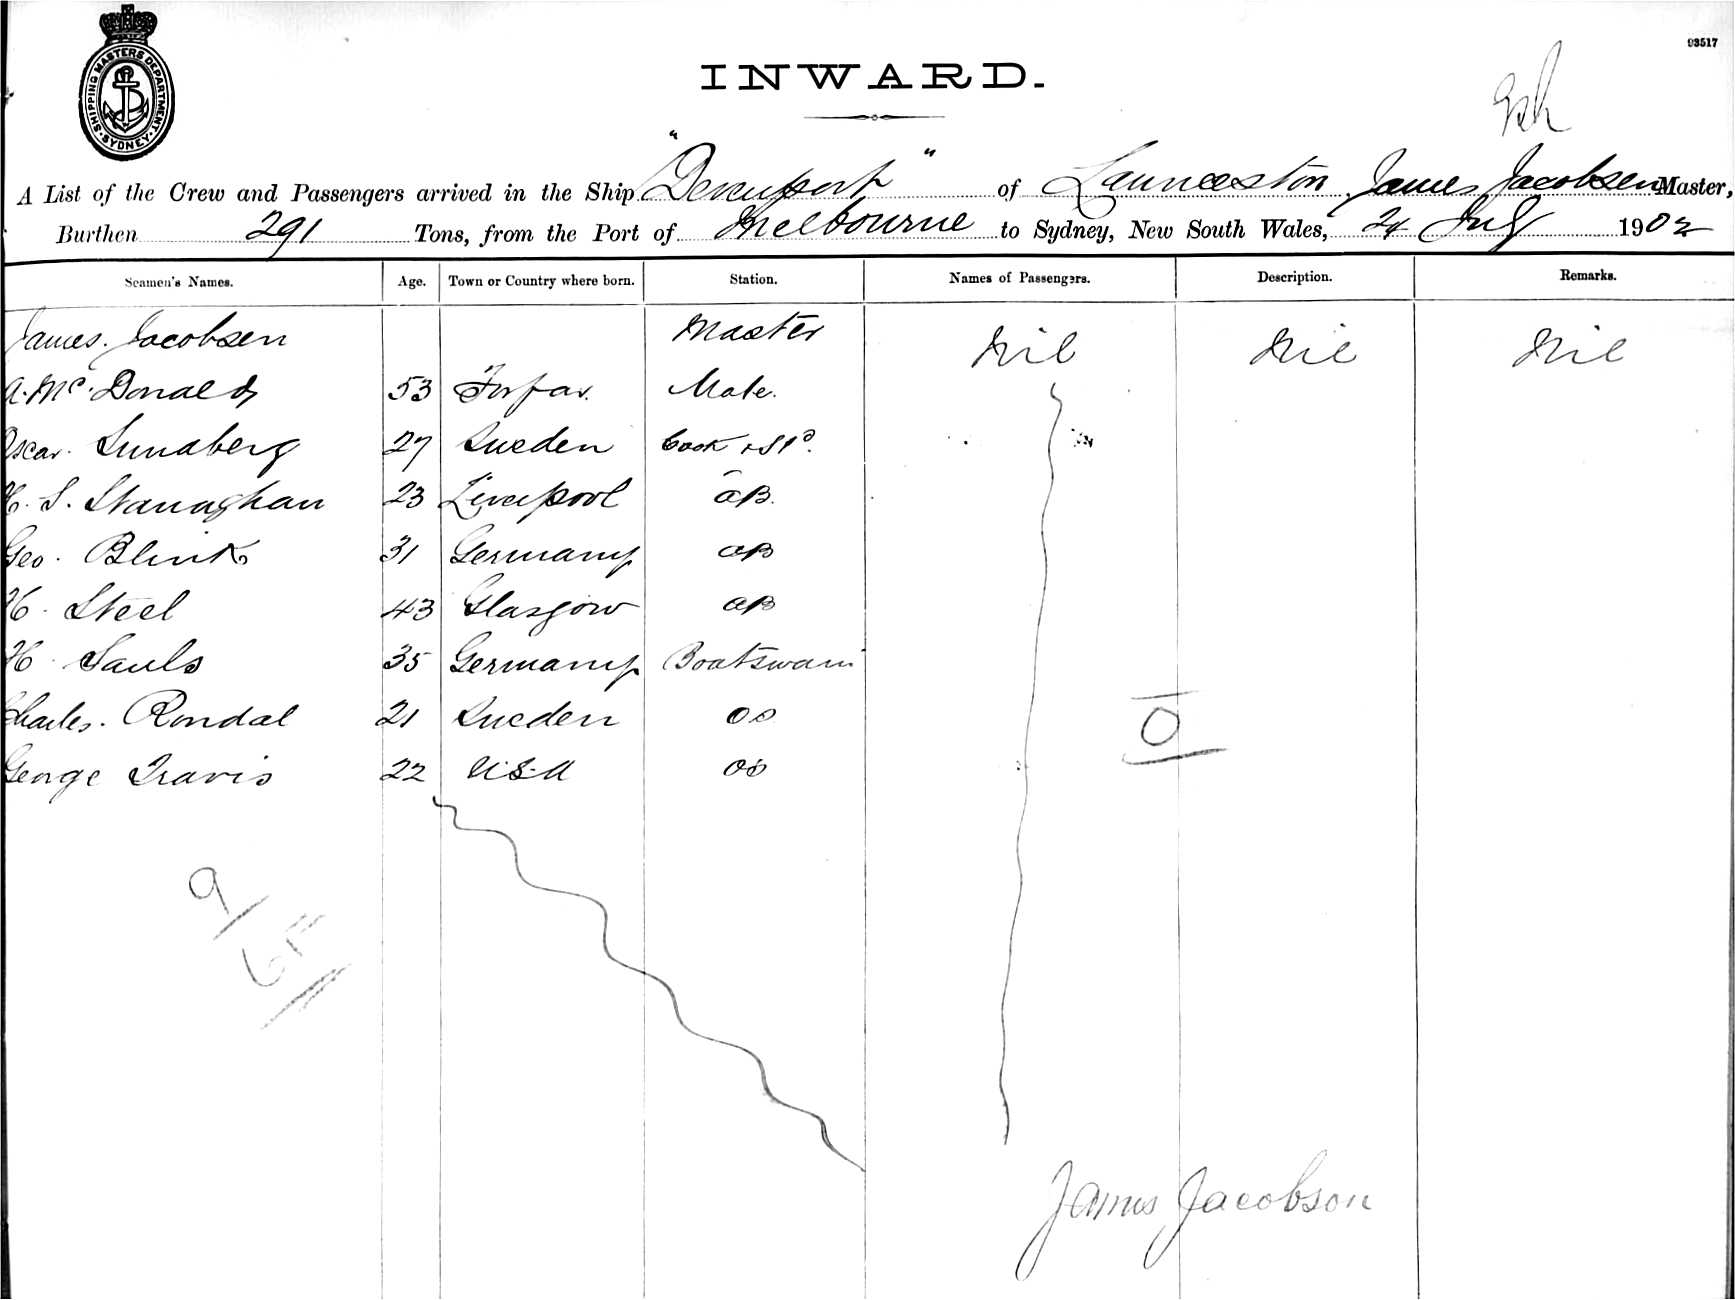 SHIPPING MASTERS DEPARTMENT. SYDNEY
93517
INWARD.
A List of the Crew and Passengers arrived in the Ship "Devenport" of Launceston James Jacobsen Master,
Burthen 291 Tons, from the Port of Melbourne to Sydney, New South Wales, 24 July 1902
Seamen's Names. Age. Town or Country where born. Station. Names of Passengers. Description. Remarks.
James. Jacobsen Master Nil Nil Nil
A. McDonald 53 Forfar. Mate.
Oscar. Lundberg 27 Sweden Cook & Std.
H. S. Stanaghan 23 Liverpool AB.
Geo. Blink 31 Germany AB
H. Steel 43 Glasgow AB
H. Sauls 35 Germany Boatswain
Charles. Rondal 21 Sweden OS
George Travis 22 U.S.A OS
0
9
James Jacobson